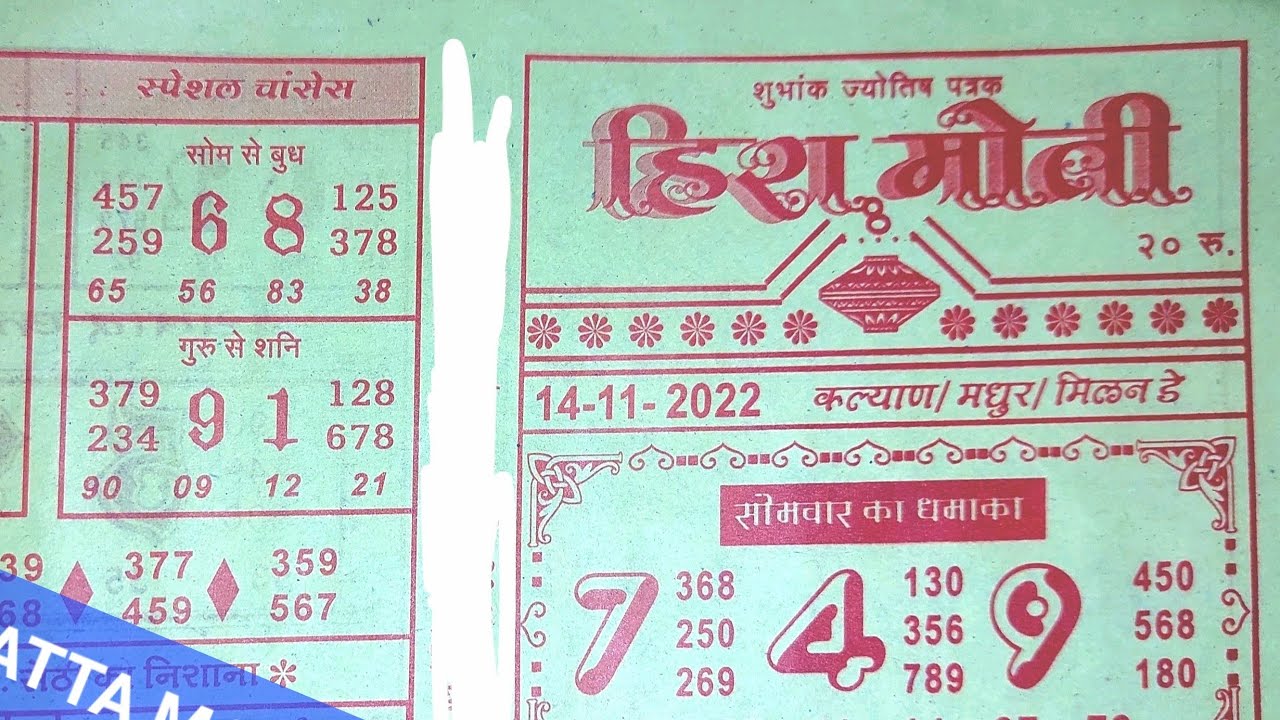 स्पेशल चांसेस
सोम से बुध
457 6 8 125
259 378
65 56 83 38
गुरु से शनि
379 9 1 128
234 678
90 09 12 21
39 377 359
68 459 567
का निशाना
ATTA M
शुभांक ज्योतिष पत्रक
हिरा मोती
२० रु.
14-11-2022 कल्याण/ मधुर/ मिलन डे
सोमवार का धमाका
7 368 4 130 9 450
250 356 568
269 789 180